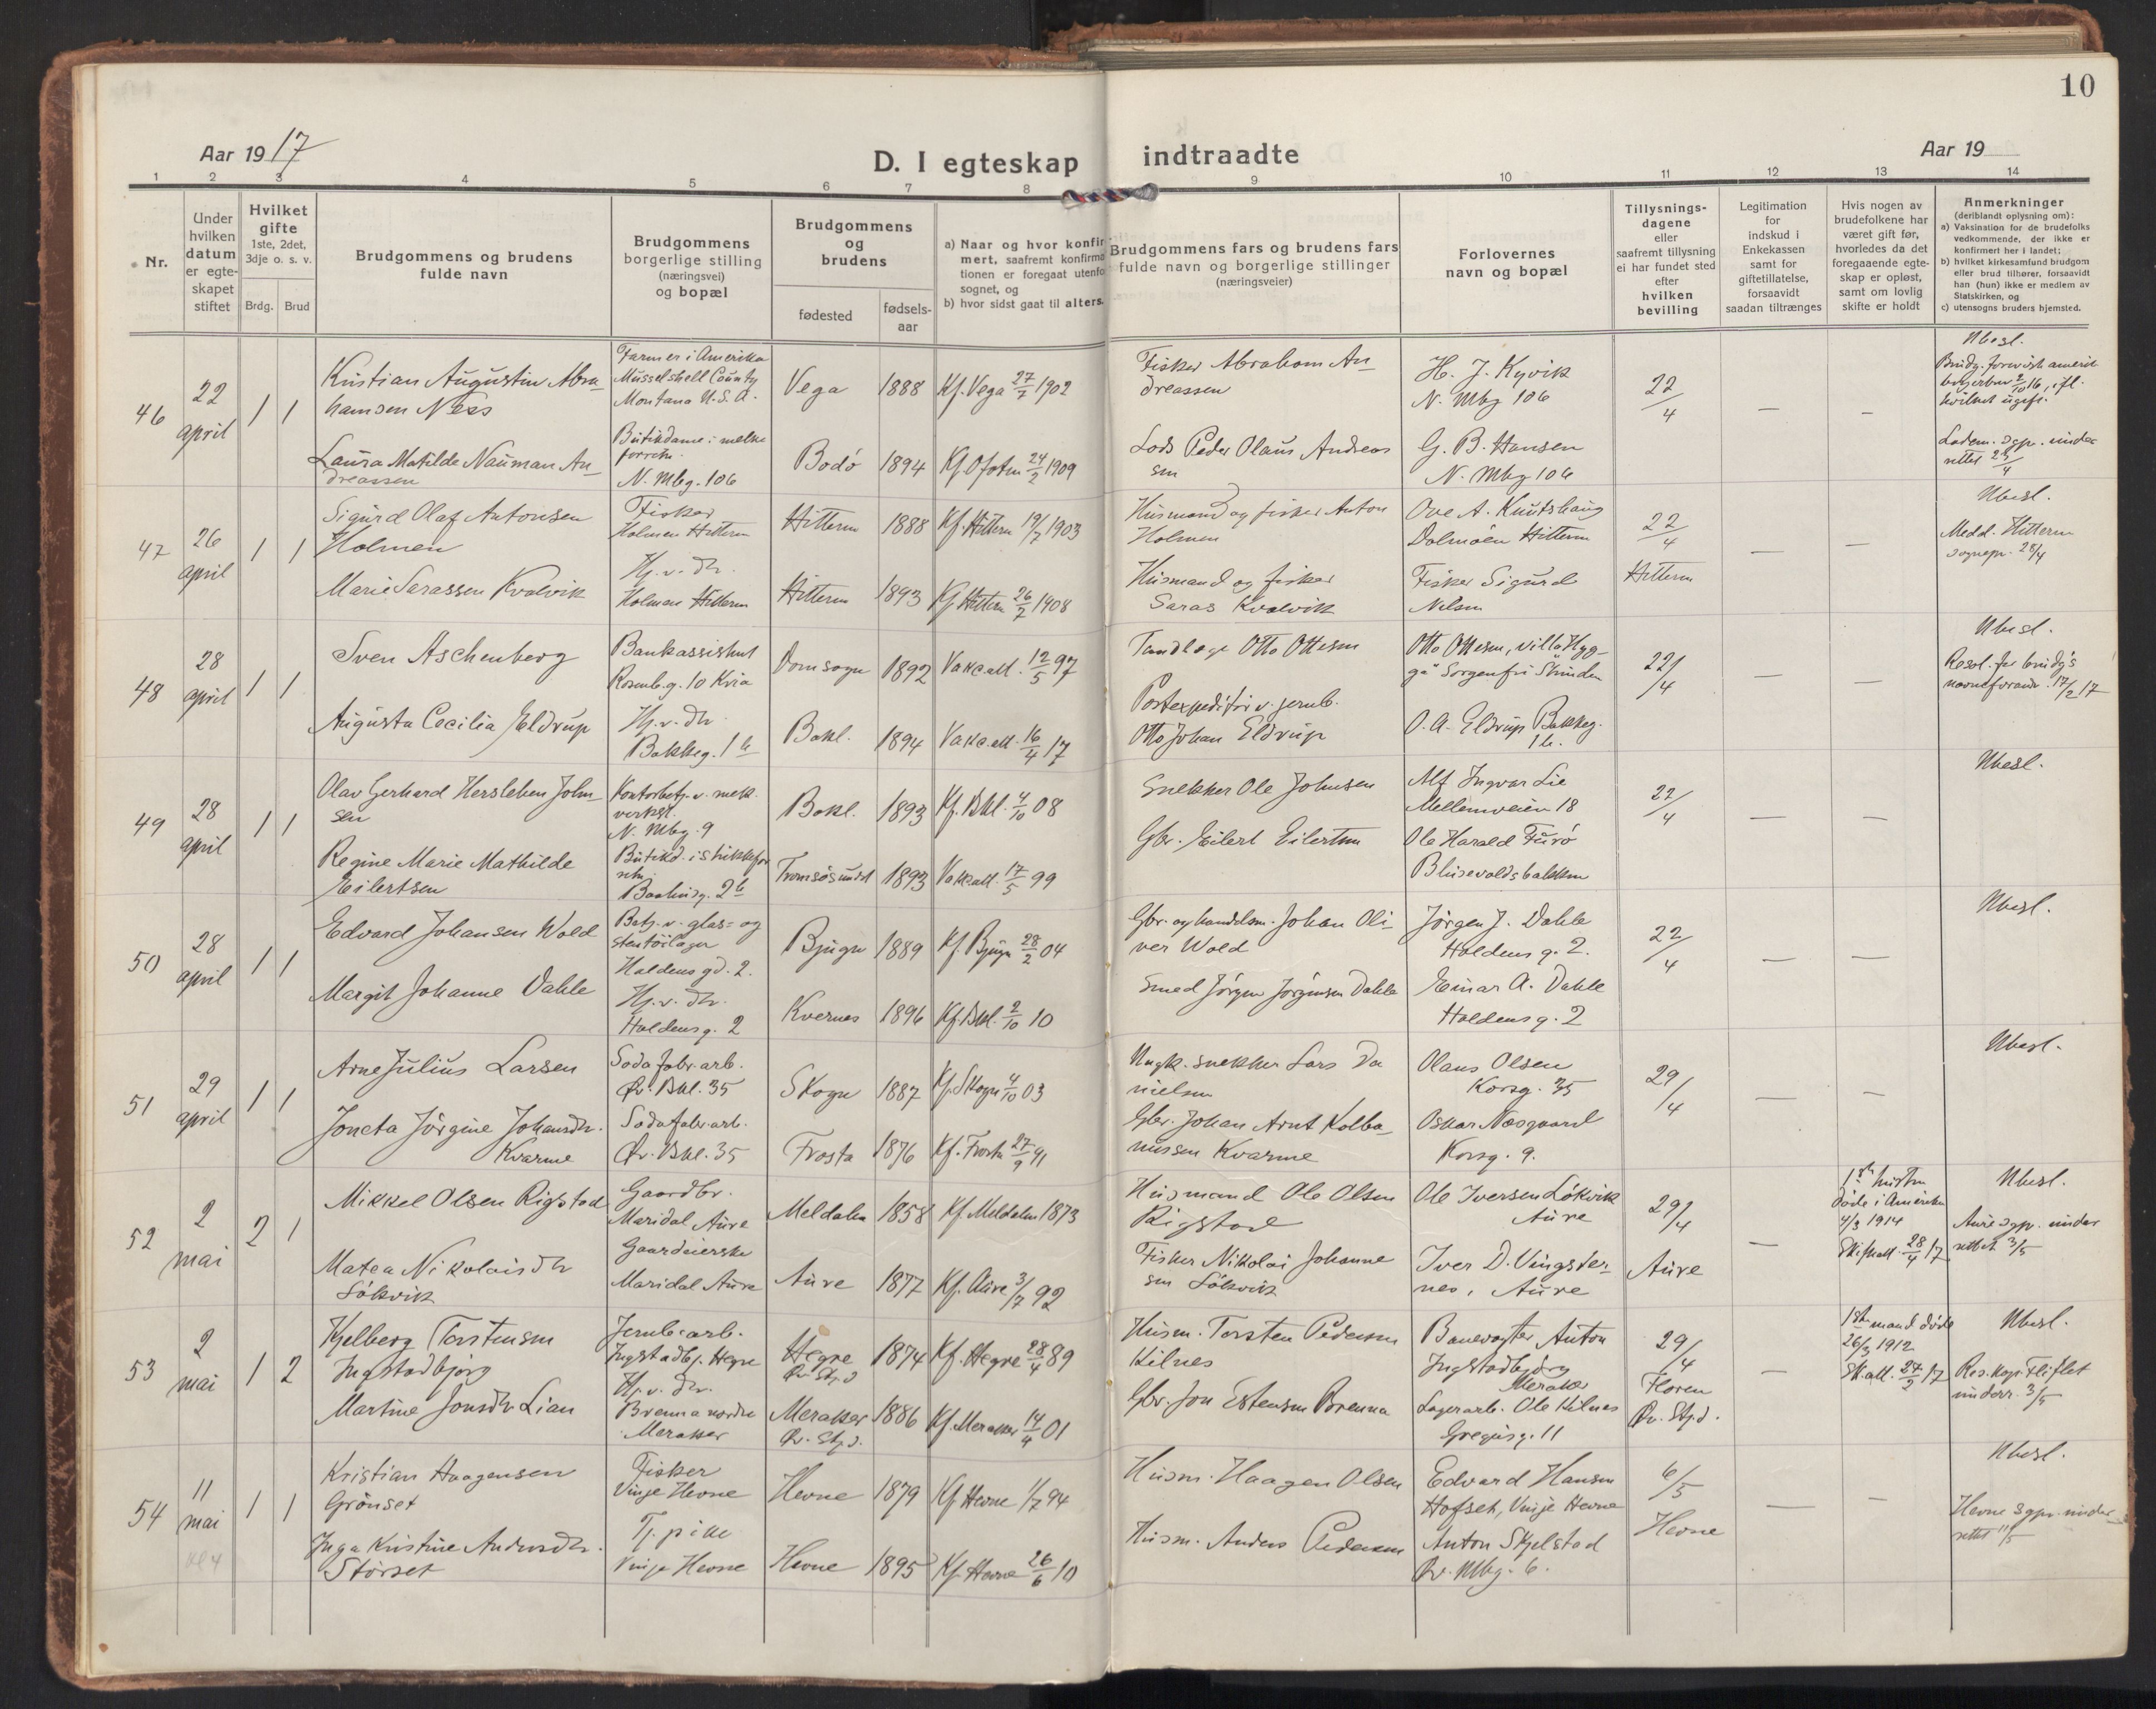 10
Aar 1917
D. I egteskap indtraadte
Aar 19
1 2 3 4 5 6 7 8 9 10 11 12 13 14
Nr.
Under
hvilken
datum
er egte-
skapet
stiftet
Hvilket
gifte
1ste, 2det,
3dje o. s. v.
Brdg. Brud
Brudgommens og brudens
fulde navn
Brudgommens
borgerlige stilling
(næringsvei)
og bopæl
Brudgommens
og
brudens
fødested
fødsels-
aar
a) Naar og hvor konfir
mert, saafremt konfirma
tionen er foregaat utenfo
sognet, og
b) hvor sidst gaat til alters.
Brudgommens fars og brudens fars
fulde navn og borgerlige stillinger
(næringsveier)
Forlovernes
navn og bopæl
Tillysnings-
dagene
eller
saafremt tillysning
ei har fundet sted
efter
hvilken
bevilling
Legitimation
for
indskud i
Enkekassen
samt for
giftetillatelse,
forsaavidt
saadan tiltrænges
Hvis nogen av
brudefolkene har
været gift før,
hvorledes da det
foregaaende egte-
skap er opløst,
samt om lovlig
skifte er holdt
Anmerkninger
(deriblandt oplysning om):
a) Vaksination for de brudefolks
vedkommende, der ikke er
konfirmert her i landet;
b) hvilket kirkesamfund brudgom
eller brud tilhører, forsaavidt
han (hun) ikke er medlem av
Statskirken, og
c) utensogns bruders hjemsted.
46
22
april
1 1
Kristian Augustin Abra-
hamsen Ness
Farmer i Amerika
Musselshell County
Montana U.S.A.
Vega 1888 Kf. Vega 27/7 1902
Fisker Abraham An-
dreassen
H. J. Kyvik
N. Mbg 106
22/4
— —
Ubesl.
Laura Matilde Nauman An-
dreassen
Butikdame i melke
forretn.
N. Mbg. 106
Bodö 1894 Kf Ofoten 24/2 1909
Lods Peder Olaus Andreas
sen
G. B. Hansen
N. Mbg 106
Ladem. sgpr. under
rettet 23/4
47
26
april
1 1
Sigurd Olaf Antonsen
Holmen
Fisker
Holmen Hitteren
Hitteren 1888 Kf. Hitteren 19/7 1903
Husmand og fisker Anton
Holmen
Ove A. Knutshaug
Dolmöen Hitteren
22/4
Hitteren
— —
Ubesl.
Medd. Hitteren
sognepr. 28/4
Marie Sarassen Kvalvik
Hj. v. dr.
Holmen Hitteren
Hitteren 1893 Kf Hitteren 26/7 1908
Husmand og fisker
Saras Kvalvik
Fisker Sigurd
Nilsen
48
28
april
1 1
Sven Aschenberg
Bankassistent
Rosenb.g. 10 Kria
Domsogn 1892 Vakc.att. 12/5 97
Tandlæge Otto Ottesen
Otto Ottesen, villa "Hyg-
ga" Sorgenfri Strinden
22/4
— —
Ubesl.
Resol. for brudg's
navneforandr. 17/2 17
Augusta Cecilia Eldrup
Hj. v. dr.
Bakkeg. 1 b
Bakl. 1894 Vakc.att. 16/4 17
Postexpeditör v. jernb.
Otto Johan Eldrup
O. A. Eldrup Bakkeg.
1 b.
49
28
april
1 1
Olav Gerhard Hersleben John-
sen
Kontorbetj. v. mek.
verkst.
N. Mbg. 9
Bakl. 1893 Kf. Bkl. 4/10 08
Snekker Ole Johnsen
Alf Ingvar Lie
Mellemveien 18
22/4
— —
Ubesl.
Regine Marie Mathilde
Eilertsen
Butikd. i strikkefor
retn.
Baahusg. 2 b
Tromsösund 1893 Vakc.att. 17/5 99
Gbr. Eilert Eilertsen
Ole Harald Furö
Blusevoldsbakken
50
28
april
1 1
Edvard Johansen Wold
Betj. v. glas- og
stentöilager
Haldens gd. 2.
Bjugn 1889 Kf. Bjugn 28/2 04
Gbr. og handelsm. Johan Oli-
ver Wold
Jörgen J. Dahle
Haldens g. 2.
22/4
— —
Ubesl.
Margit Johanne Dahle
Hj. v. dr.
Haldens g. 2
Kvernes 1896 Kf. Bkl. 2/10 10
Smed Jörgen Jörginsen Dahle
Einar A. Dahle
Haldens g. 2
51
29
april
1 1
Arne Julius Larsen
Sodafabr. arb.
Öv. Bkl. 35
Skogn 1887 Kf. Skogn 4/10 03
Ungk. snekker Lars Da
nielsen
Olaus Olsen
Korsg. 35
29/4
— —
Ubesl.
Joneta Jörgine Johansdr.
Kvarme
Sodafabr. arb.
Öv. Bkl. 35
Frosta 1876 Kf. Frosta 27/9 91
Gbr. Johan Arnt Kolba-
nussen Kvarme
Oskar Næsgaard
Korsg. 9.
52
2
mai
2 1
Mikkel Olsen Rigstad
Gaardbr.
Maridal Aure
Meldalen 1858 Kf. Meldalen 1873
Husmand Ole Olsen
Rigstad
Ole Iversen Lökvik
Aure
29/4
Aure
—
1ste hustru
döde i Amerika
4/3 1914
Skifteatt. 28/4 17
Ubesl.
Aure sgpr. under
rettet 3/5
Matea Nikolaisdr
Lökvik
Gaardeierske
Maridal Aure
Aure 1877 Kf. Aure 3/7 92
Fisker Nikolai Johanne
sen Lökvik
Iver D. Vingster-
nes, Aure
53
2
mai
1 2
Kjelberg Torstensen
Ingstadbjörg
Jernb. arb.
Ingstadbj. Hegre
Hegre
Öv. Stj.d
1874 Kf. Hegre 28/4 89
Husm. Torsten Pedersen
Kilnes
Banevogter Anton
Ingstadbjörg
Meraker
29/4
Floren
Öv. Stj.d.
—
1ste mand döde
26/3 1912
Sk.att. 27/2 17
Ubesl.
Res. kap. Fliflet
underr. 3/5
Martine Jonsdr. Lian
Hj. v. dr.
Brenna nordre
Meraker
Meraker
Öv. Stj.d.
1886 Kf. Meraker 14/4 01
Gbr. Jon Estensen Brenna
Lagerarb. Ole Kilnes
Gregusg. 11
54
11
mai
kl 4
1 1
Kristian Haagensen
Grönset
Fisker
Vinje Hevne
Hevne 1879 Kf Hevne 1/7 94
Husm. Haagen Olsen
Edvard Hansen
Hofset, Vinje Hevne
6/5
Hevne
— —
Ubesl.
Hevne sgpr. under
rettet 11/5
Inga Kristine Andersdr.
Störset
Tj. pike
Vinje Hevne
Hevne 1895 Kf. Hevne 26/6 10
Husm. Anders Pedersen
Anton Skjelstad
Öv. Mbg. 6.